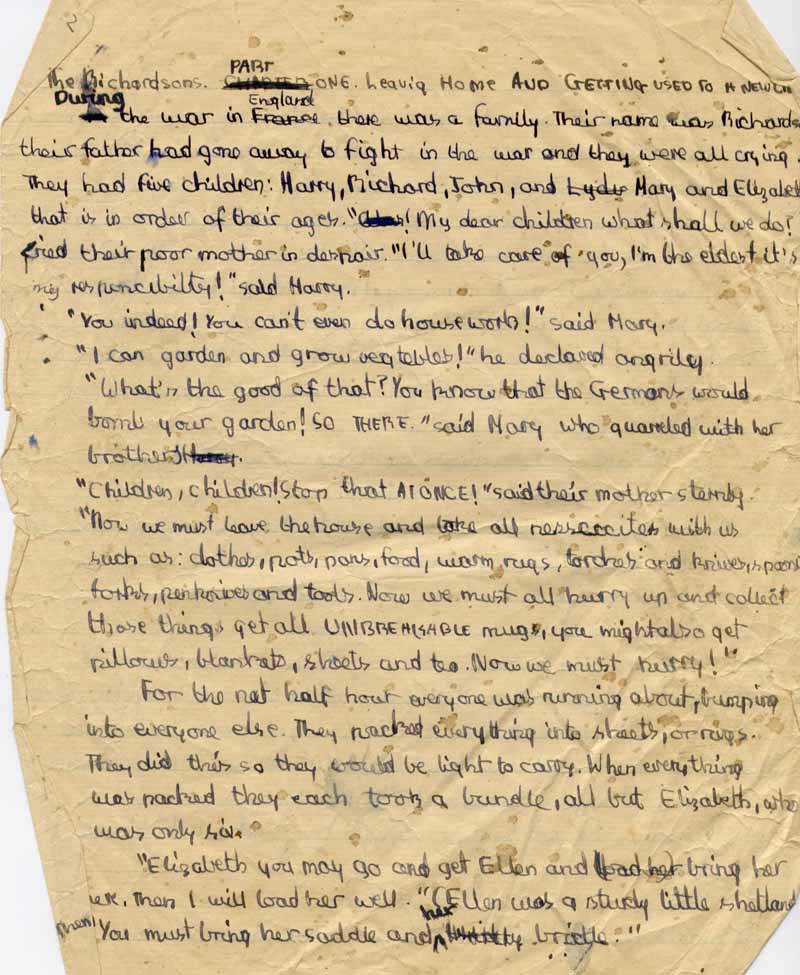 The Richardsons. PART ONE. Leavig Home AND GETTING USED TO A NEW
During the war in England there was a familly. Their name was Richards
their father had gone away to fight in the war and they were all crying.
They had five children: Harry, Richard, John, and Mary and Elizabet
that is in order of their ages. "My dear children what shall we do!
cried their poor mother in despair. "I'll take care of you, I'm the eldest it's
my responcibilty!" said Harry.
"You indeed! You can't even do housework!" said Mary.
"I can garden and grow vegtables!" he declared angrily.
"What's the good of that? You know that the Germans would
bomb your garden! SO THERE." said Mary who quarreled with her
brother.
"Children, children! Stop that AT ONCE!" said their mother sternly.
"Now we must leave the house and take all nessercites with us
such as: clothes, pots, pans, food, warm rugs, torches and knives, spoons
forks, penknives and tools. Now we must all hurry up and collect
those things get all UNBREAKABLE mugs, you might also get
pillows, blankets, sheets and tea. Now we must hurry!"
For the net half hour everyone was running about, bumping
into everyone else. They packed everything into sheets, or rugs.
They did this so they would be light to carry. When everything
was packed they each took a bundle, all but Elizabeth, who
was only six.
"Elizabeth you may go and get Ellen and bring her
here. Then I will load her well. "(Ellen was a sturdy little shetland
pony) You must bring her saddle and her bridle."